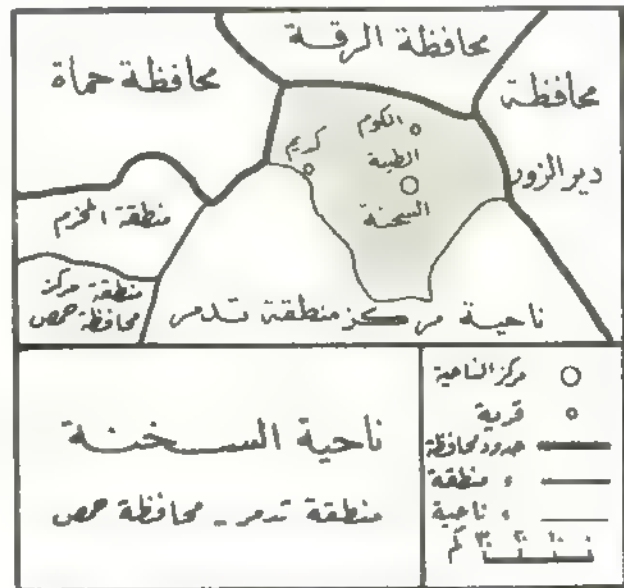 محافظة الرقة
محافظة حماة
محافظة
دير الزور
الكوم
كريم
الطيبة
السخنة
منطقة المخرم
منطقة مركز
محافظة حمص
ناحية مركز منطقة تدمر
ناحية السخنة
منطقة تدمر - محافظة حمص
مركز الناحية
قرية
حدود محافظة
» منطقة
» ناحية
٣٠ ٢٠ ١٠ ٠ كم